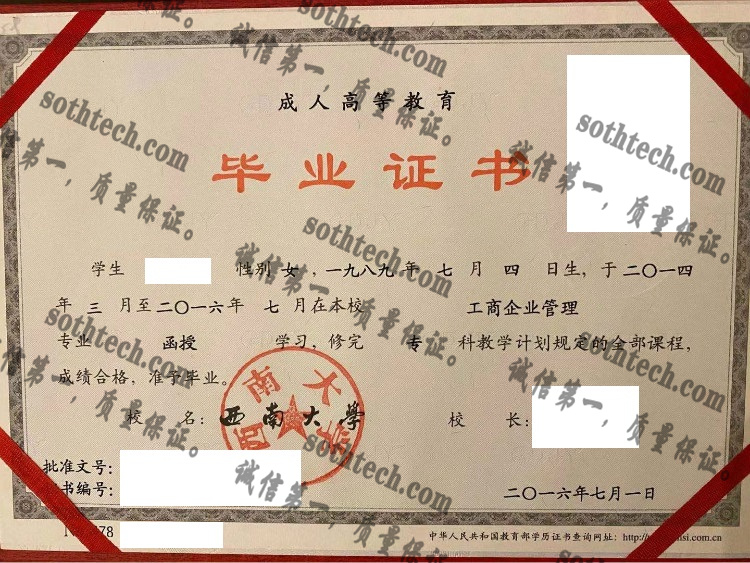 成人高等教育
毕业证书
学生 性别 女，一九八九年 七 月 四 日生，于二〇一四
年 三 月至二〇一六年 七 月在本校 工商企业管理
专业 函授 学习，修完 专 科教学计划规定的全部课程，
成绩合格，准予毕业。
校 名：西南大學 校 长：
西南大学
批准文号：
书编号：
二〇一六年七月一日
78
中华人民共和国教育部学历证书查询网址：http:// si.com.cn
sothtech.com
诚信第一，质量保证。
sothtech.com
诚信第一，质量保证。
sothtech.com
诚信第一，质量保证。
sothtech.com
诚信第一，质量保证。
sothtech.com
诚信第一，质量保证。
sothtech.com
诚信第一，质量保证。
sothtech.com